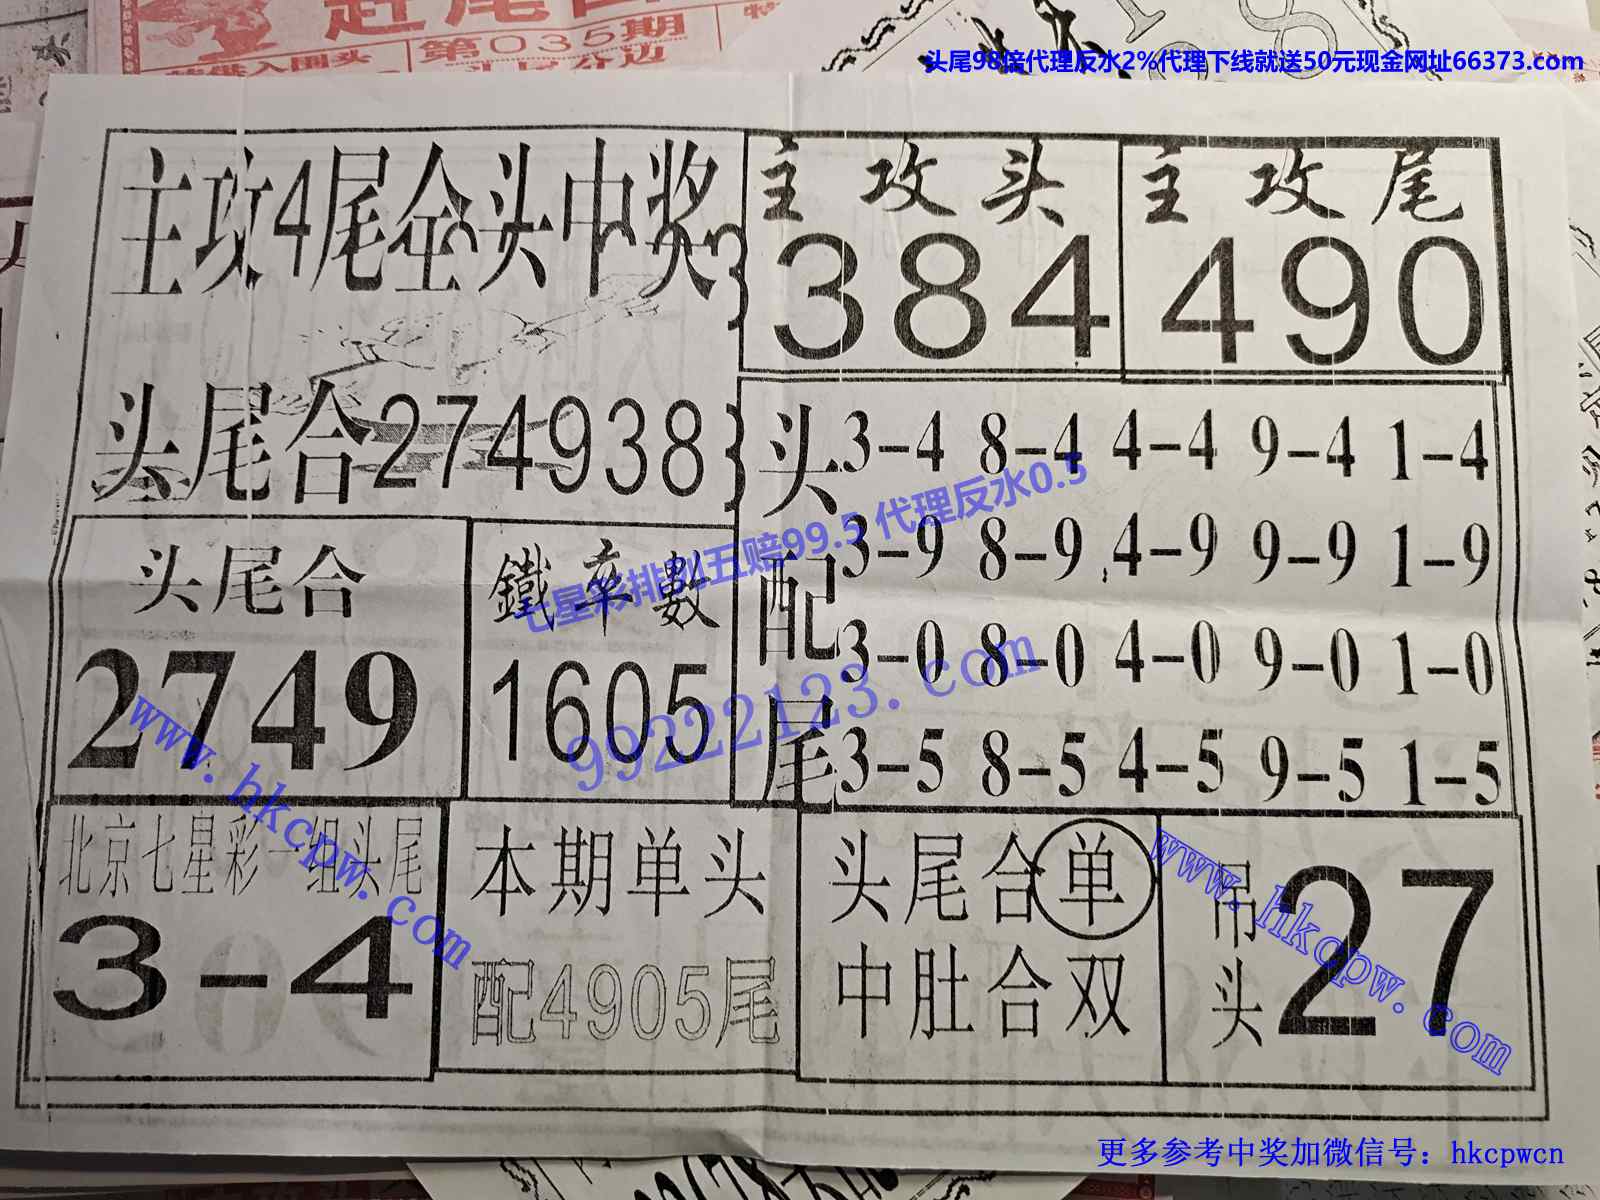 第035期
头尾98倍代理反水2%代理下线就送50元现金网址66373.com
主攻4尾全头中奖
头尾合274938
主攻头
384
主攻尾
490
头配尾
3-4 8-4 4-4 9-4 1-4
3-9 8-9 4-9 9-9 1-9
3-0 8-0 4-0 9-0 1-0
3-5 8-5 4-5 9-5 1-5
头尾合
2749
鐵率數
1605
七星彩排列五赔99.5 代理反水0.5
99222123.com
www.hkcpw.com
北京七星彩一组头尾
3-4
本期单头
配4905尾
头尾合单
中肚合双
吊头
27
www.hkcpw.com
更多参考中奖加微信号：hkcpwcn